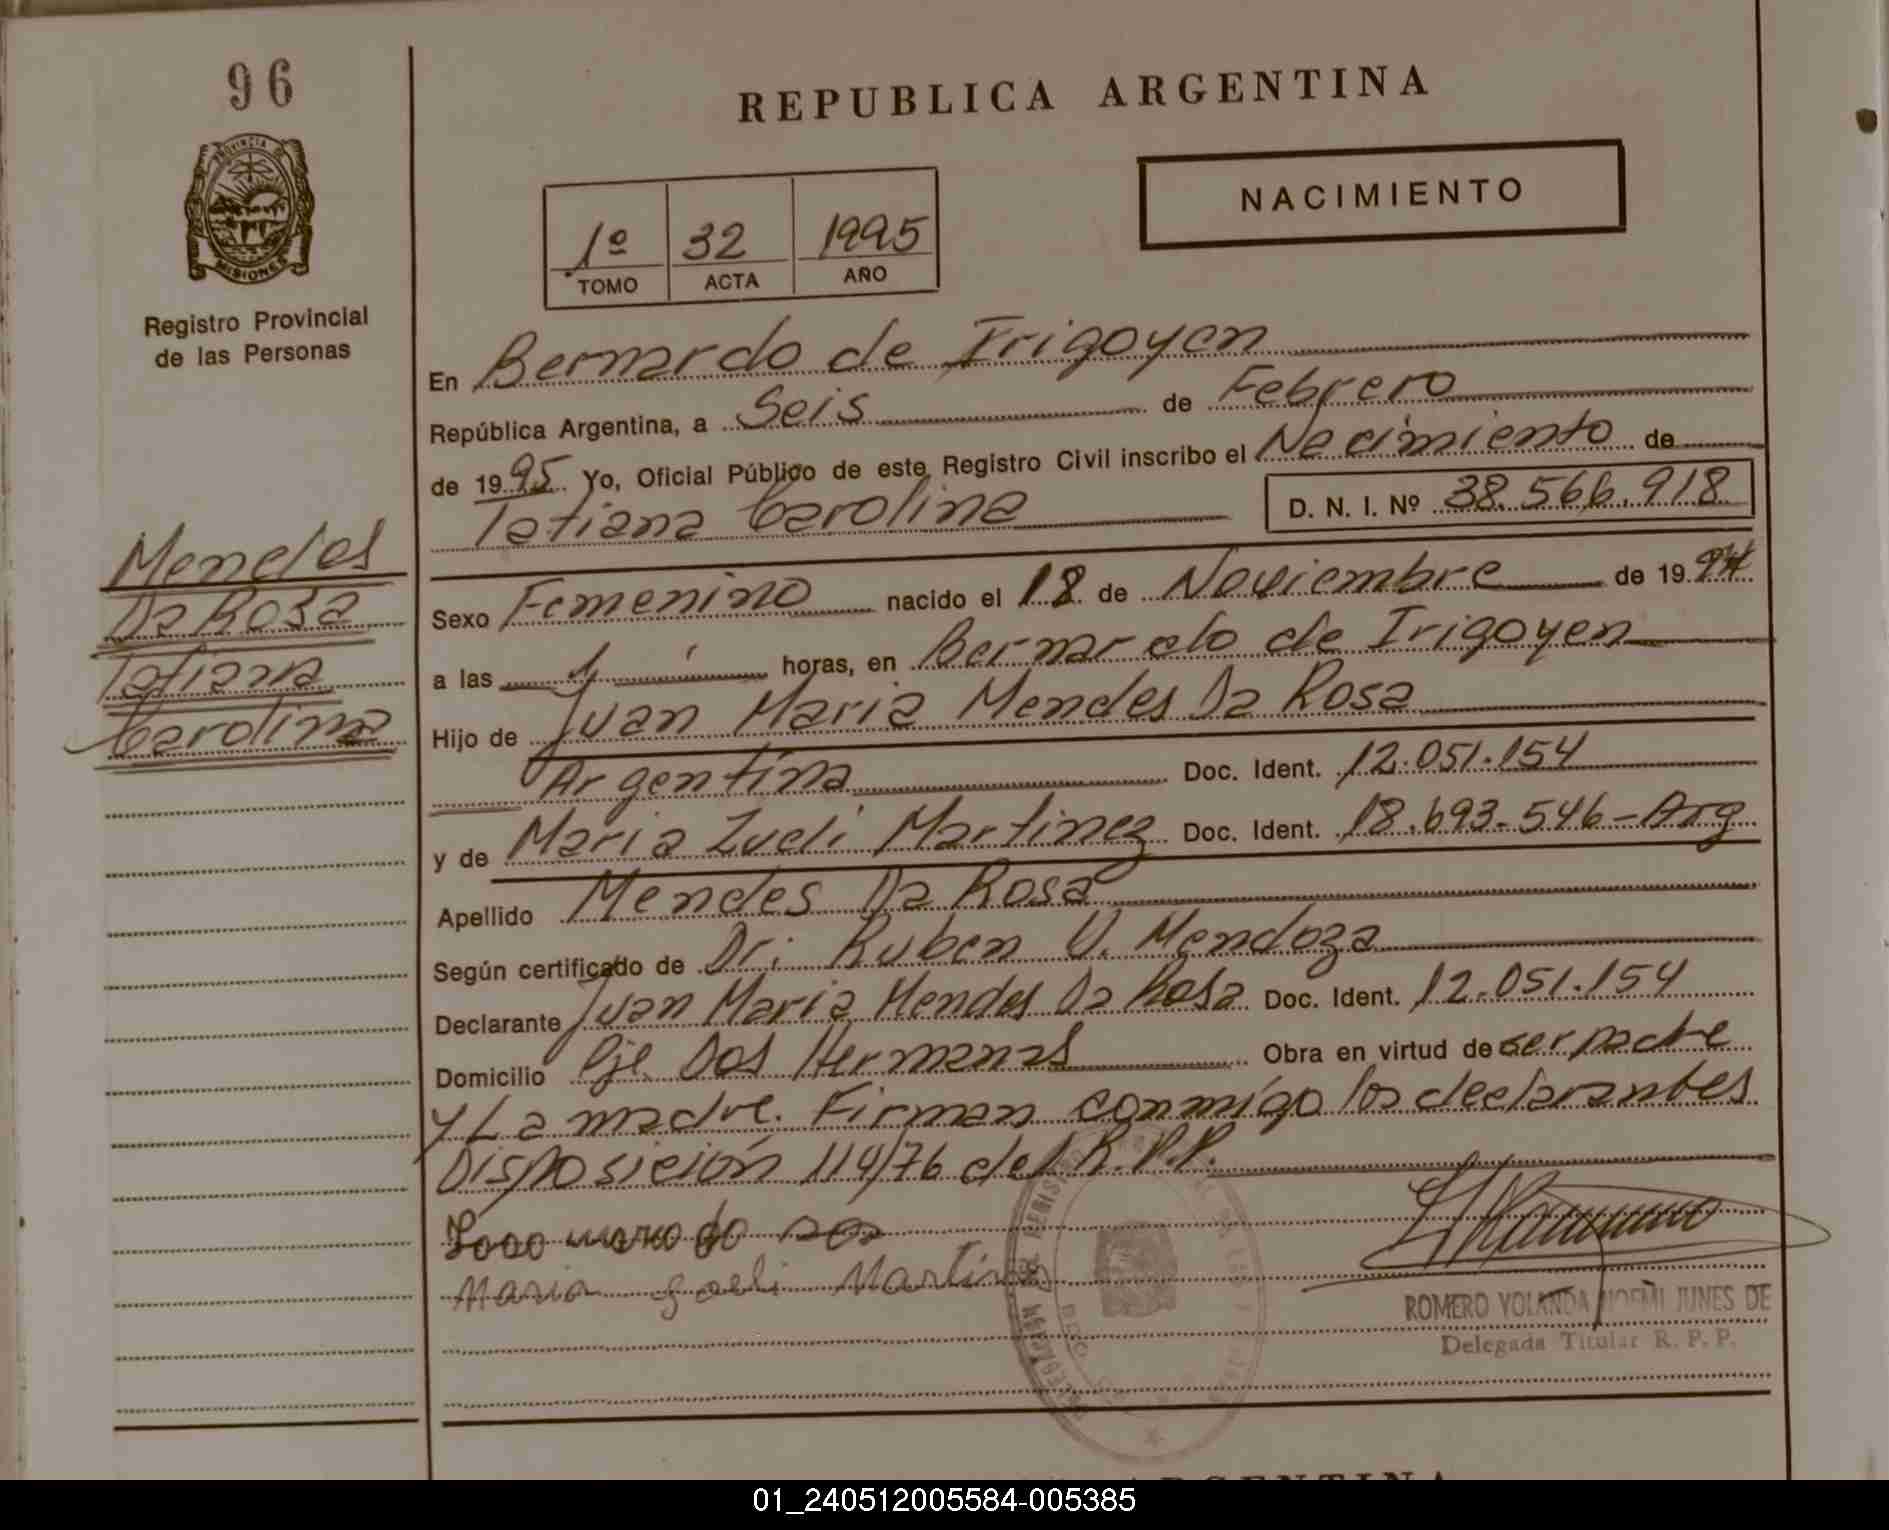 96
PROVINCIA DE
MISIONES
Registro Provincial
de las Personas
Mendes
Da Rosa
Tatiana
Carolina
REPUBLICA ARGENTINA
NACIMIENTO
1º 32 1995
TOMO ACTA AÑO
En Bernardo de Irigoyen
República Argentina, a Seis de Febrero
de 1995 Yo, Oficial Público de este Registro Civil inscribo el Nacimiento de
Tatiana Carolina D. N. I. Nº 38.566.918
Sexo Femenino nacido el 18 de Noviembre de 1994
a las horas, en Bernardo de Irigoyen
Hijo de Juan Maria Mendes Da Rosa
Argentina Doc. Ident. 12.051.154
y de Maria Zueli Martinez Doc. Ident. 18.693.546-Arg
Apellido Mendes Da Rosa
Según certificado de Dr. Ruben V. Mendoza
Declarante Juan Maria Mendes Da Rosa Doc. Ident. 12.051.154
Domicilio Pje. Dos Hermanas Obra en virtud de ser padre
y La madre. Firman conmigo los declarantes
Disposición 114/76 del R.P.P.
Maria Martinez
ROMERO YOLANDA NOEMI JUNES DE
Delegada Titular R. P. P.
ARGENTINA
01_240512005584-005385